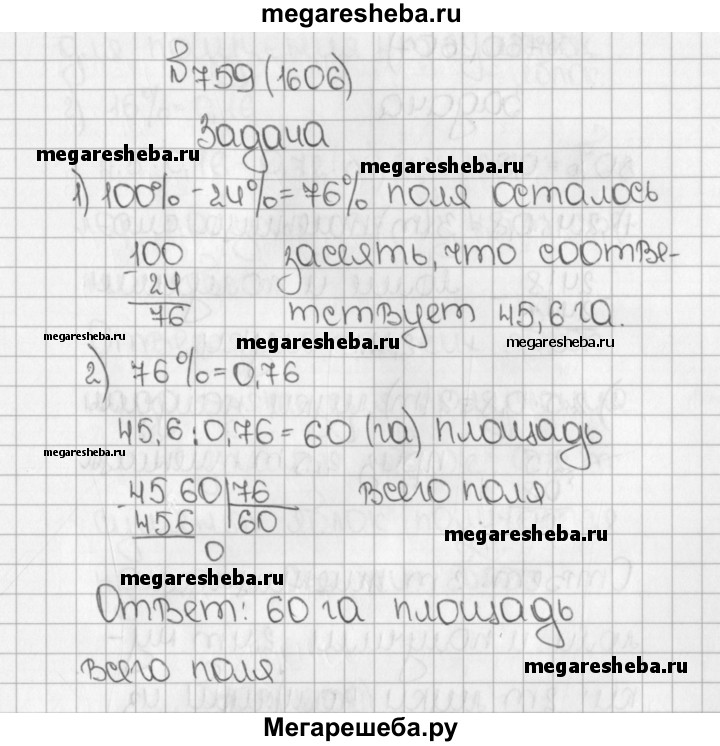 megaresheba.ru
№759(1606)
Задача
megaresheba.ru
megaresheba.ru
1) 100% - 24% = 76% поля осталось
100 засеять, что соотве-
- 24
76 тствует 45,6 га.
megaresheba.ru megaresheba.ru megaresheba.ru
2) 76% = 0,76
45,6 : 0,76 = 60 (га) площадь
megaresheba.ru
- 45 60 | 76 всего поля
456 | 60
megaresheba.ru
0
megaresheba.ru
Ответ: 60 га площадь
всего поля.
megaresheba.ru
Мегарешеба.ру